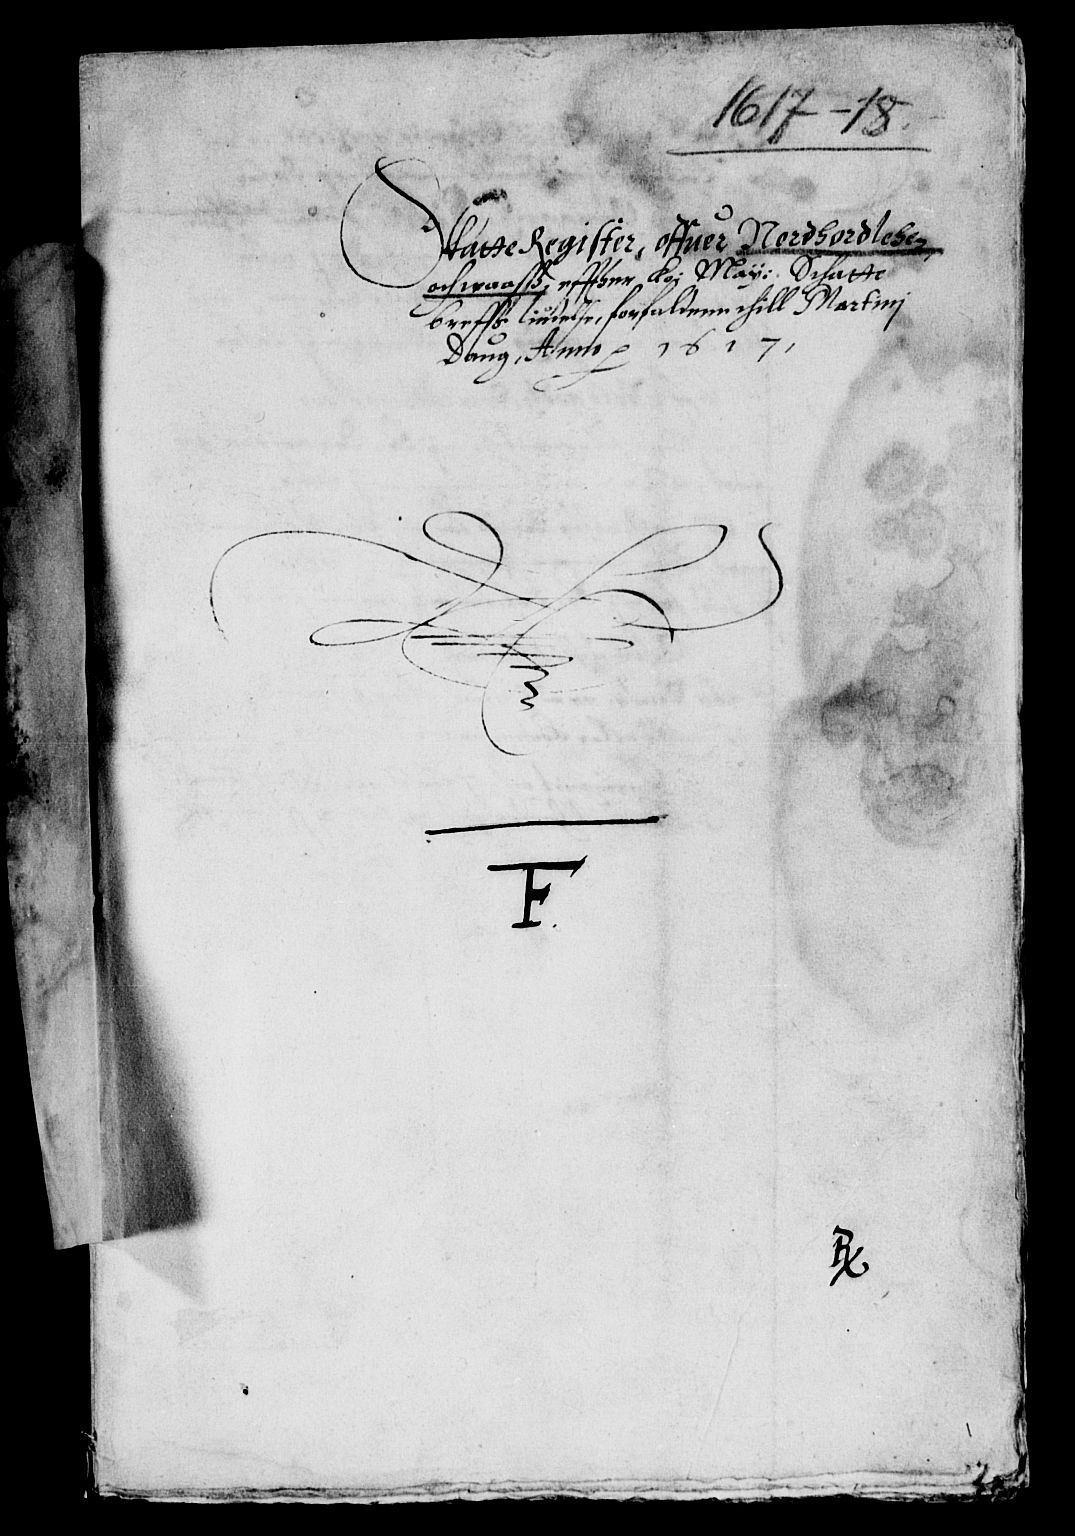 1617-18.
Skatte Register, offuer Nordhordlehn,
och waass, effther Ko: May: Schatte
breffs liudelse, forfaldenn thill Martinj
Daug, Anno 1617,
F.